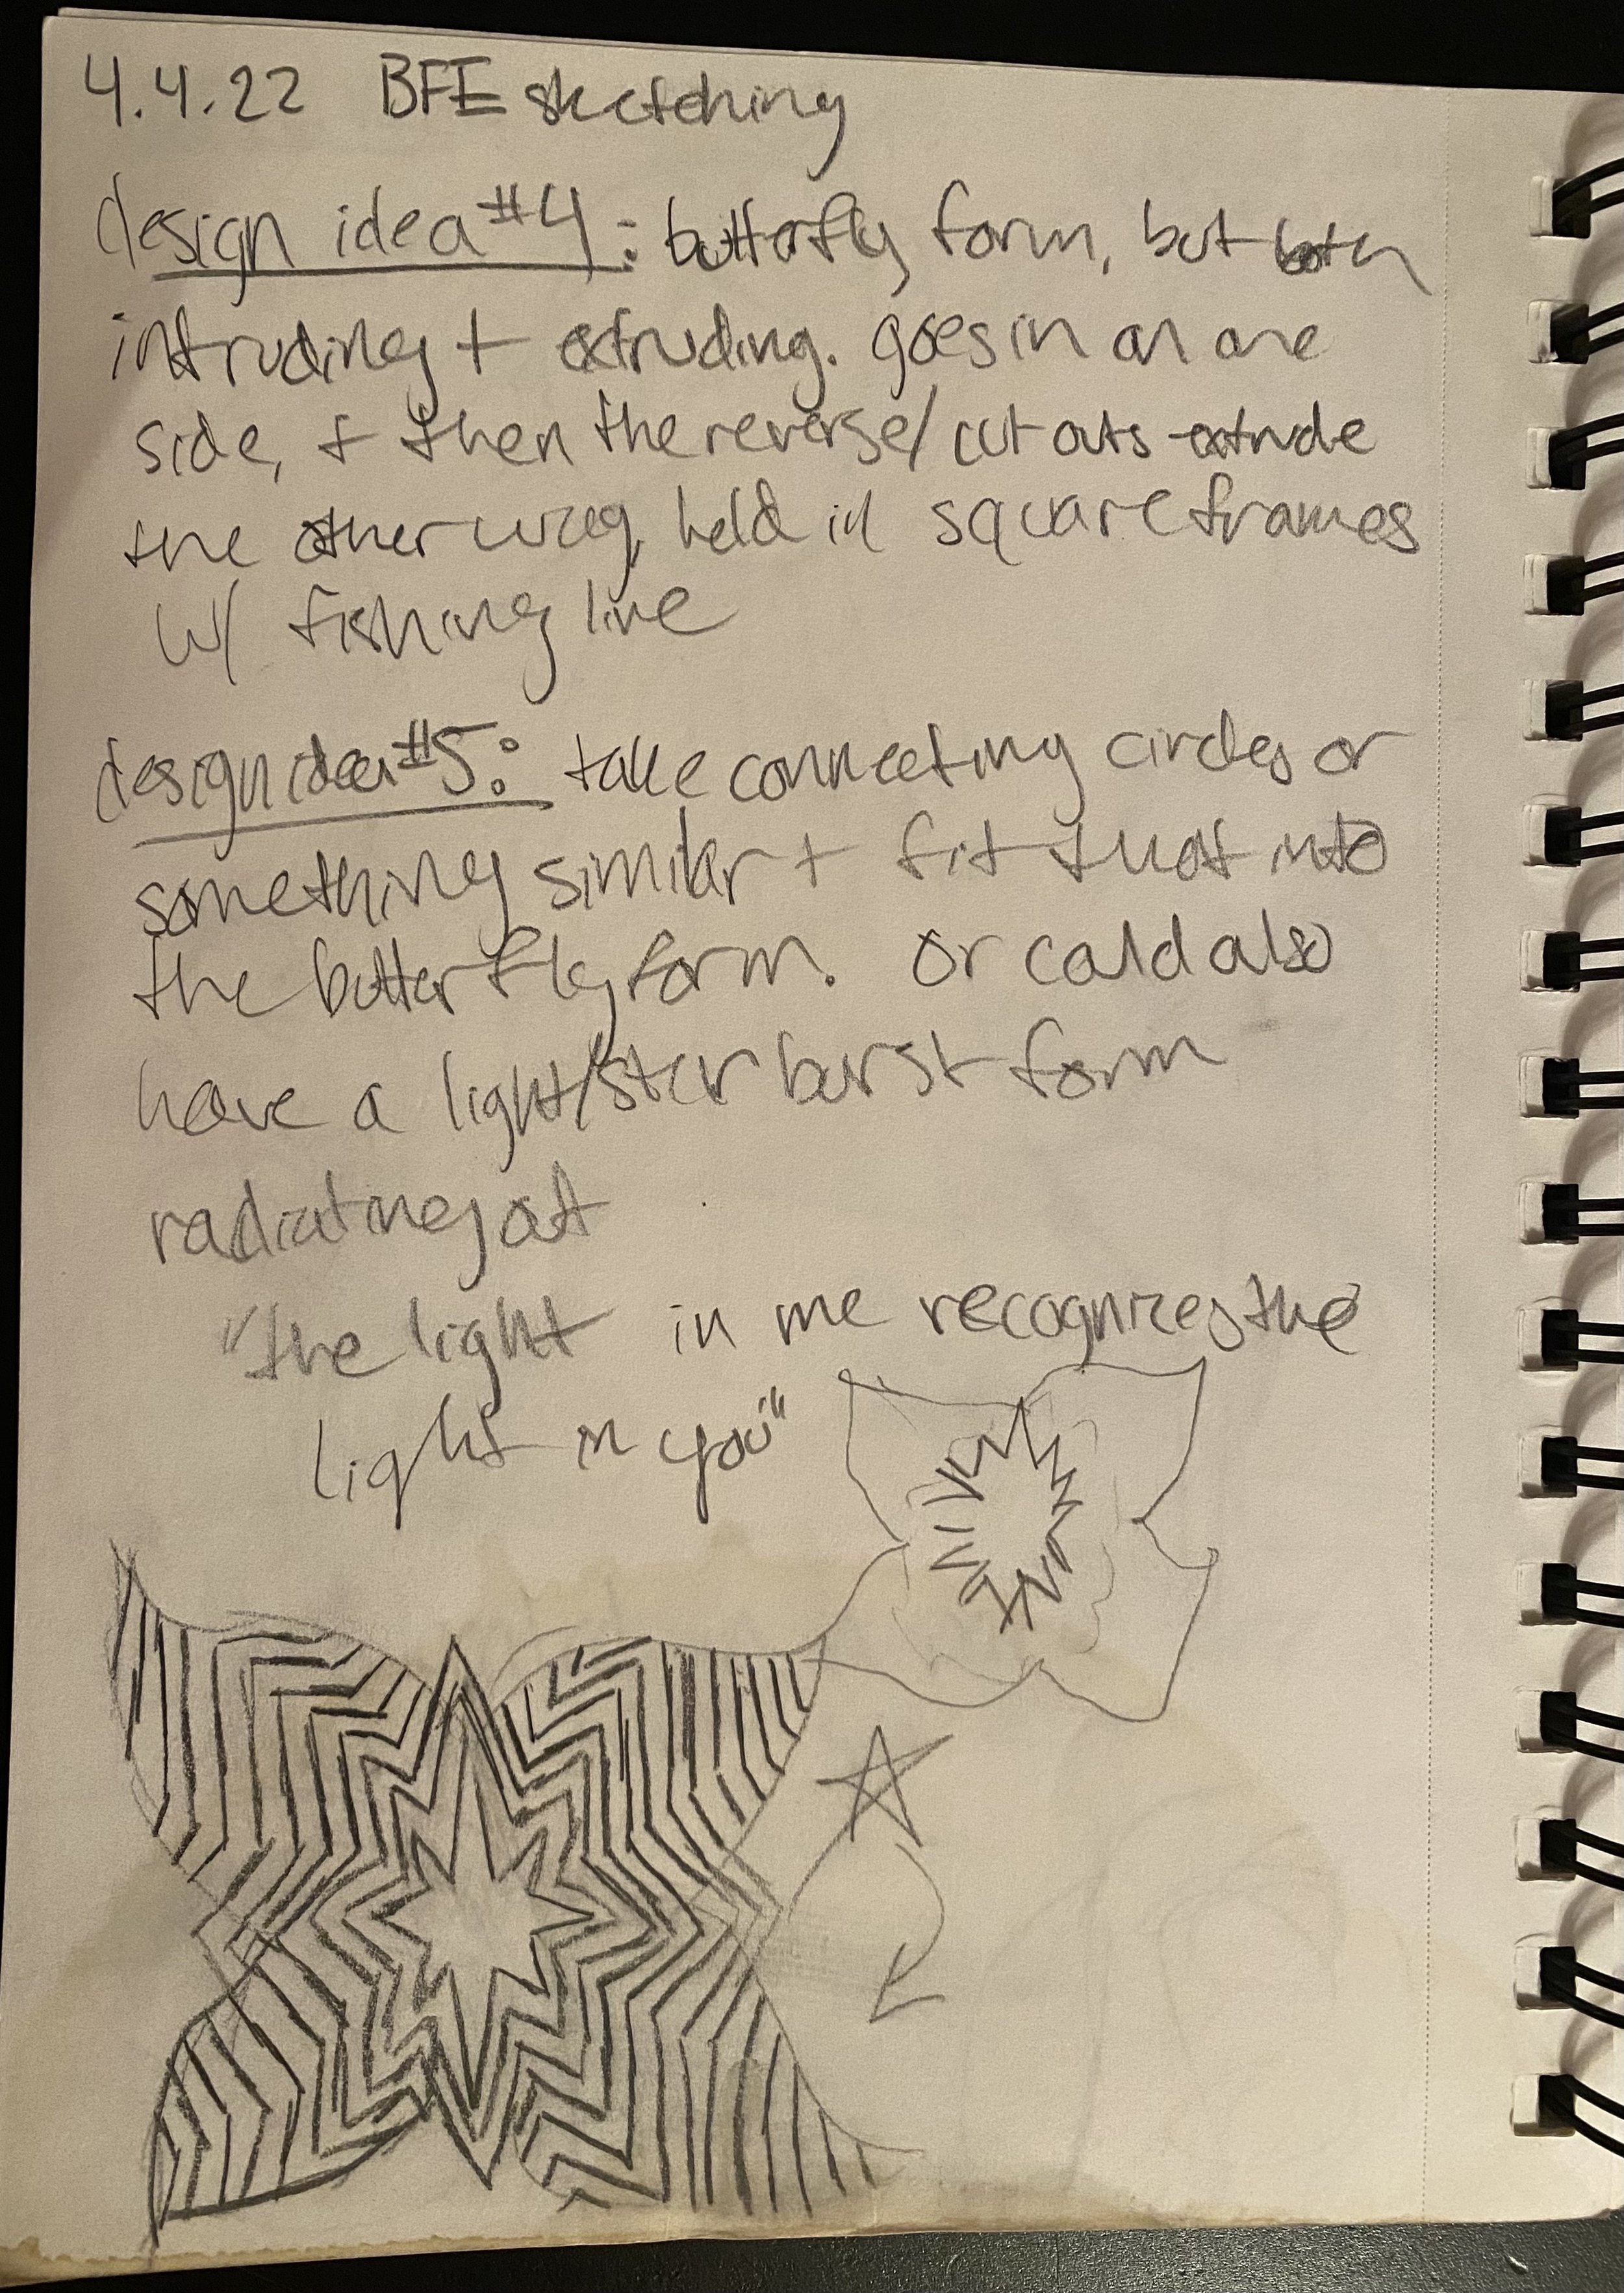 4.4.22 BFE sketching
design idea #4: butterfly form, but both
intruding + extruding. goes in on one
side, + then the reverse/cut outs extrude
the other way, held in square frames
w/ fishing line
design idea #5: take connecting circles or
something similar + fit that into
the butterfly form. or could also
have a light/star burst form
radiating out
"the light in me recognizes the
light in you"